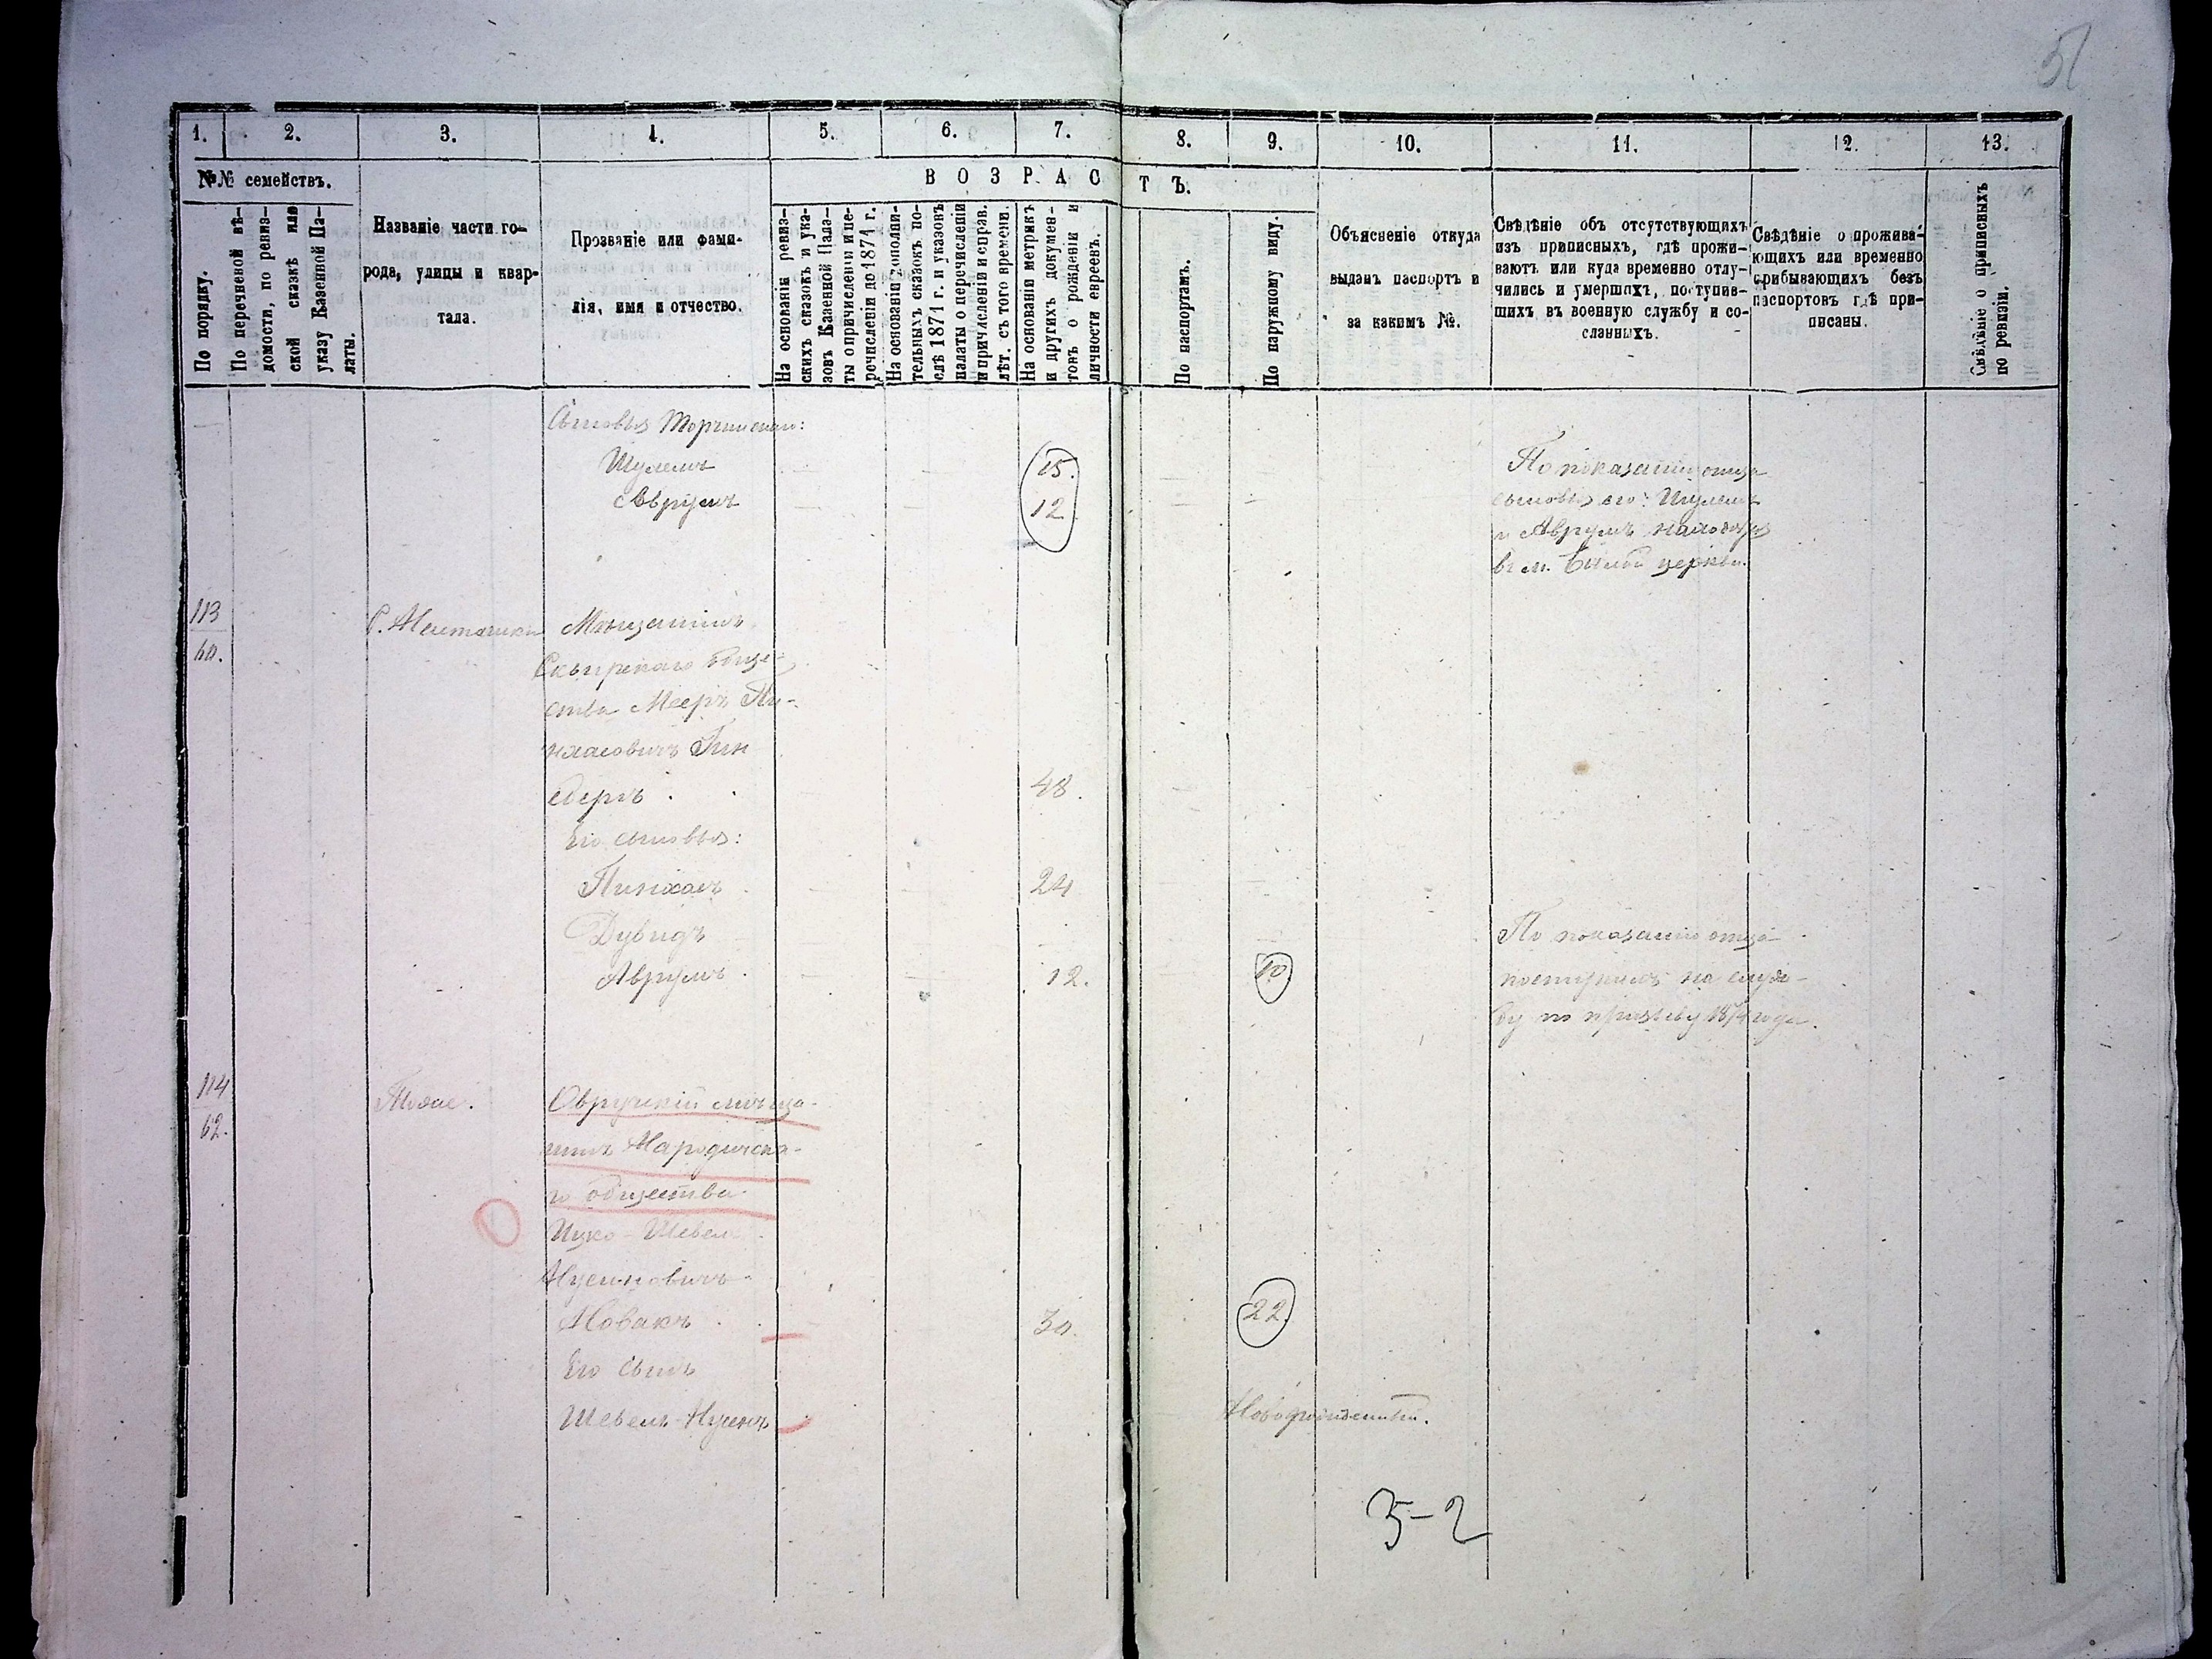 51
1. 2. 3. 4. 5. 6. 7. 8. 9. 10. 11. 12. 13.
№№ семействъ.
В О З Р А С Т Ъ.
По порядку.
По перечневой вѣ-
домости, по ревиз-
ской сказкѣ или
указу Казенной Па-
латы.
Названіе части го-
рода, улицы и квар-
тала.
Прозваніе или фами-
лія, имя и отчество.
На основаніи ревиз-
скихъ сказокъ и ука-
зовъ Казенной Пала-
ты о причисленіи и пе-
речисленіи до 1874 г.
На основаніи дополни-
тельныхъ сказокъ по-
слѣ 1874 г. и указовъ
палаты о перечисленіи
и причисленіи и справ.
лѣт. съ того времени.
На основаніи метрикъ
и другихъ докумен-
товъ о рожденіи и
личности евреевъ.
По паспортамъ.
По наружному виду.
Объясненіе откуда
выданъ паспортъ и
за какимъ №.
Свѣдѣніе объ отсутствующихъ
изъ приписныхъ, гдѣ прожи-
ваютъ или куда временно отлу-
чились и умершихъ, поступив-
шихъ въ военную службу и со-
сланныхъ.
Свѣдѣніе о прожива-
ющихъ или временно
прибывающихъ безъ
паспортовъ гдѣ при-
писаны.
Свѣдѣніе о приписныхъ
по ревизіи.
Сыновья
Шулемъ 15.
Аврумъ 12
По показанію отца
сыновья его: Шулемъ
и Аврумъ находятся
въ м. Бѣлой церкви.
113
60.
Мѣщанинъ
Сквирскаго обще-
ства Мееръ Пи-
нхасовичъ Гин
сбергъ 48.
Его сыновья:
Пинхасъ 24
Дувидъ
Аврумъ 12. 10
По показанію отца
поступилъ на служ-
бу по призыву 1874 года.
114
62.
Тоже.
Овручскій мѣща-
нинъ Народическа-
го общества
Ицко-Шевель
Нусиновичъ
Новакъ 30. 22.
Его сынъ
Шевель-Нусинъ Новорожденный.
3-2